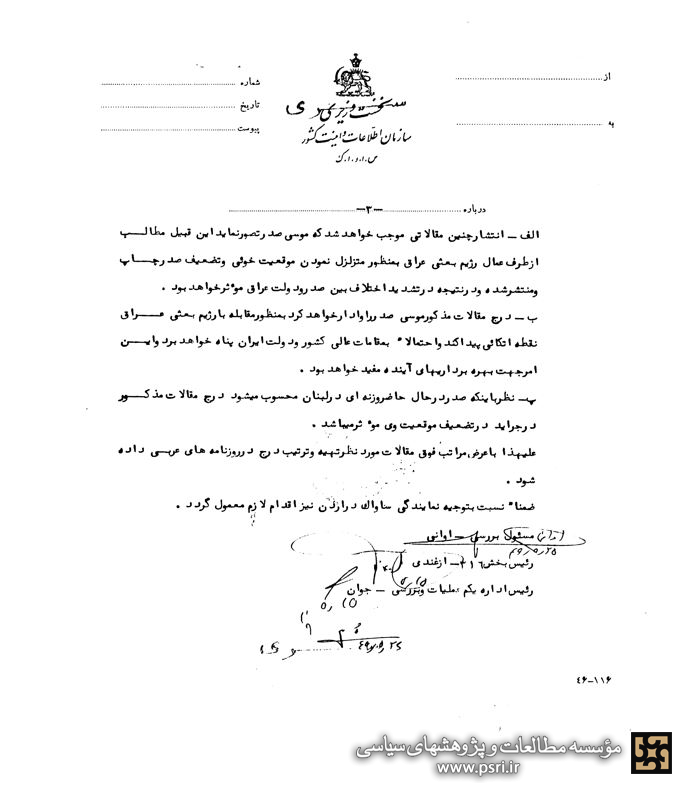 از
به
شماره
تاریخ
پیوست
نخست وزیری
سازمان اطلاعات و امنیت کشور
س.ا.و.ا.ک
درباره
-۳-
الف - انتشار چنین مقالاتی موجب خواهد شد که موسی صدر تصور نماید این قبیل مطالب
از طرف عمال رژیم بعثی عراق بمنظور متزلزل نمودن موقعیت خوئی وتضعیف صدر چاپ
ومنتشر شده ودر نتیجه در تشدید اختلاف بین صدر ودولت عراق موثر خواهد بود .
ب - درج مقالات مذکور موسی صدر را وادار خواهد کرد بمنظور مقابله با رژیم بعثی عراق
نقطه اتکائی پیدا کند واحتمالاً بمقامات عالی کشور ودولت ایران پناه خواهد برد واین
امر جهت بهره برداریهای آینده مفید خواهد بود .
پ - نظر باینکه صدر در حال حاضر وزنه ای در لبنان محسوب میشود درج مقالات مذکور
در جراید در تضعیف موقعیت وی موثر میباشد .
علیهذا با عرض مراتب فوق مقالات مورد نظر تهیه وترتیب درج در روزنامه های عربی داده
شود .
ضمناً نسبت بتوجیه نمایندگی ساواک در اردن نیز اقدام لازم معمول گردد .
مسئول بررسی - اوانی
۴۹/۵/۲۵
رئیس بخش ۳۱۶ - ازغندی
رئیس اداره یکم عملیات وبررسی - جوان
۴۹/۵/۲۵
۴۶-۱۱۶
مؤسسه مطالعات و پژوهشهای سیاسی
www.psri.ir